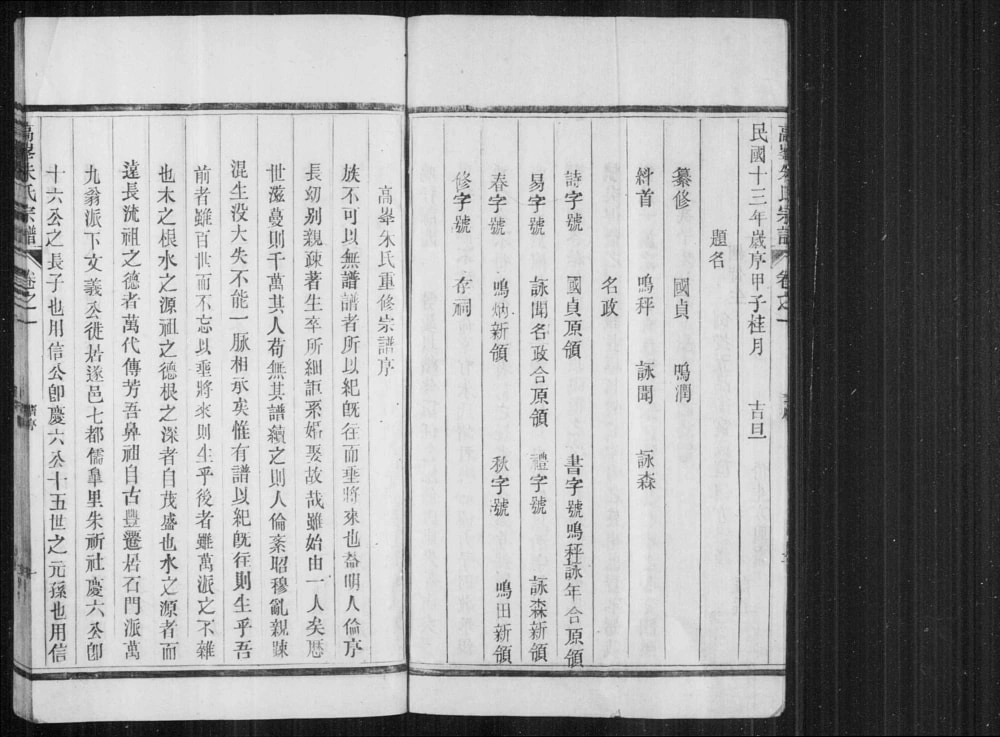 高峯朱氏宗譜 卷之一
民國十三年歲序甲子桂月 古旦
題名
纂修 國貞 鳴潤
糾首 鳴秤 詠聞 詠森
名政
詩字號 國貞原領 書字號鳴秤詠年合原領
易字號 詠聞名政合原領 禮字號 詠森新領
春字號 鳴炳新領 秋字號 鳴田新領
修字號 存祠
高峯朱氏重修宗譜序
族不可以無譜譜者所以紀旣往而垂將來也蓋明人倫序
長幼別親疎著生卒所細詎系婚娶故哉雖始由一人矣歷
世滋蔓則千萬其人苟無其譜續之則人倫紊昭穆亂親疎
混生没大失不能一脈相承矣惟有譜以紀旣往則生乎吾
前者雖百世而不忘以垂將來則生乎後者雖萬派之不雜
也木之根水之源祖之德根之深者自茂盛也水之源者而
遠長流祖之德者萬代傳芳吾鼻祖自古豐遷居石門派萬
九翁派下文義公徙居遂邑七都儒臯里朱祈社慶六公卽
十六公之長子也用信公卽慶六公十五世之元孫也用信
高峯朱氏宗譜 卷之一